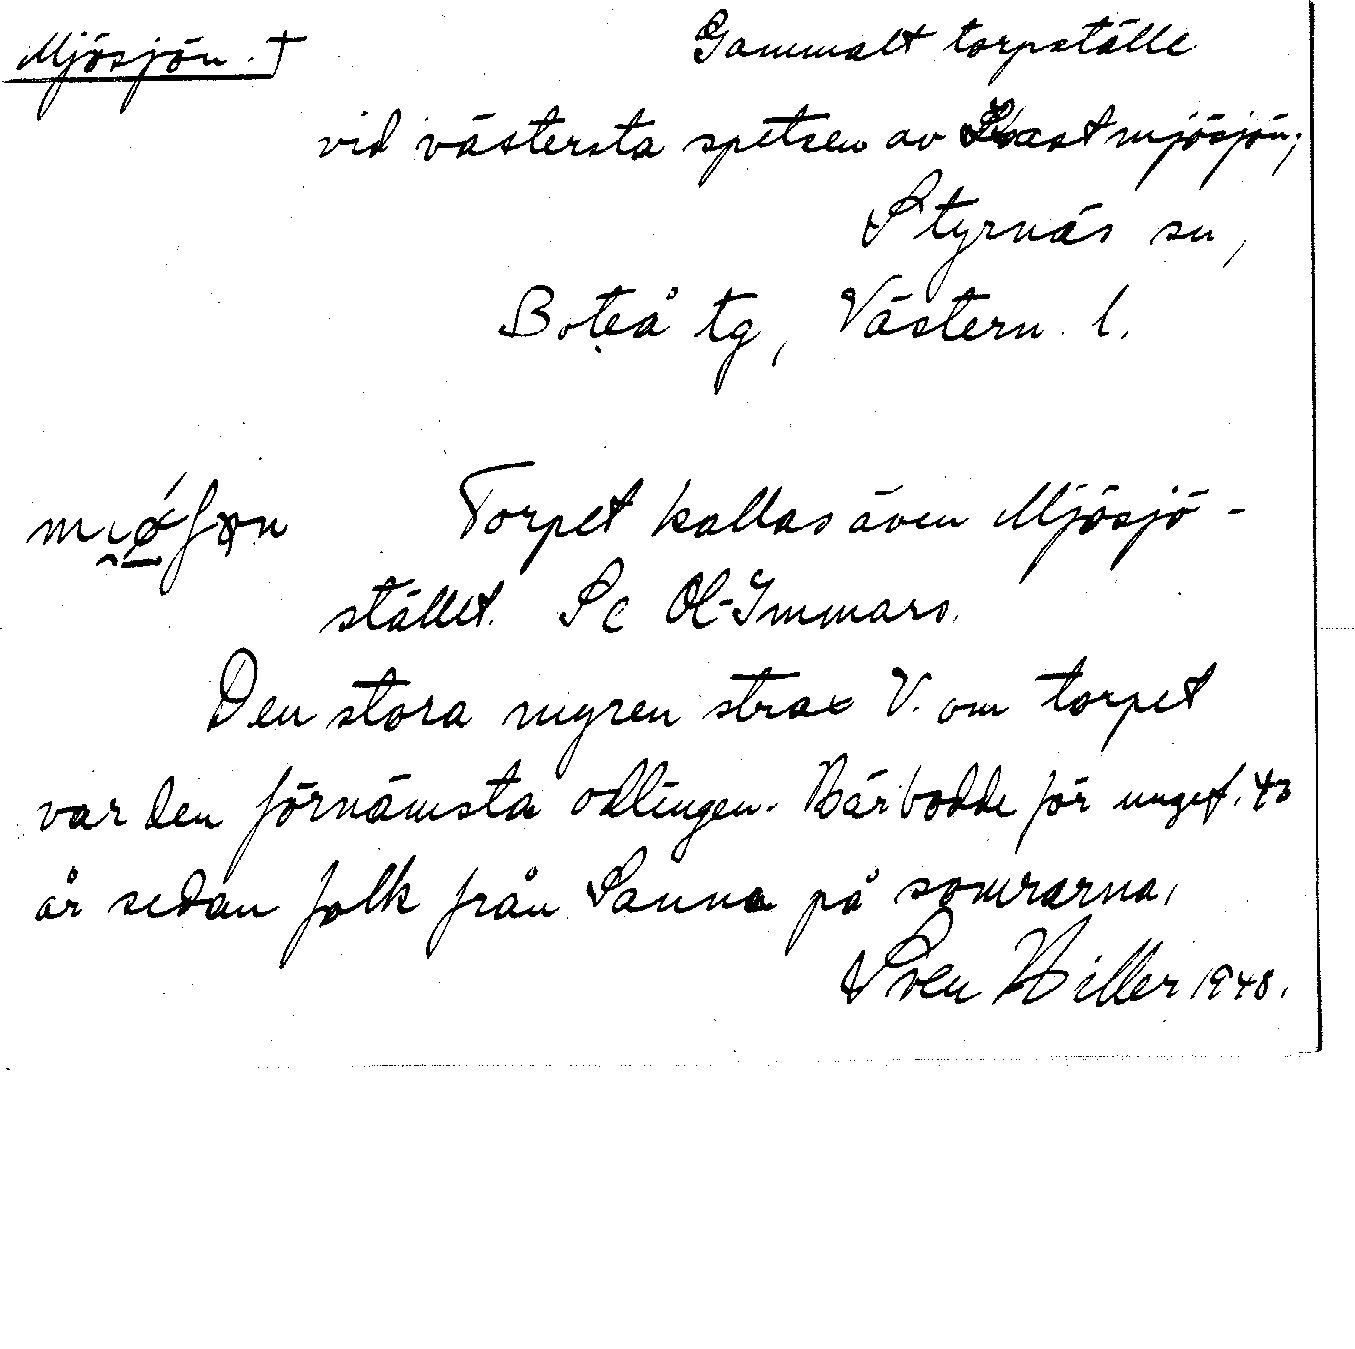 Mjösjön. † Gammalt torpställe
vid västersta spetsen av mjösjön;
Styrnäs sn,
Boteå tg, Västern. l.
Torpet kallas även Mjösjö-
stället. Se Ol-Immars.
Den stora myren strax V. om torpet
var den förnämsta odlingen. Här bodde för ungef. 40
år sedan folk från Sanna på somrarna.
Sven Hiller 1948.